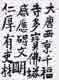 大唐西京千福
寺多寶佛塔
感應碑文
仁厚有